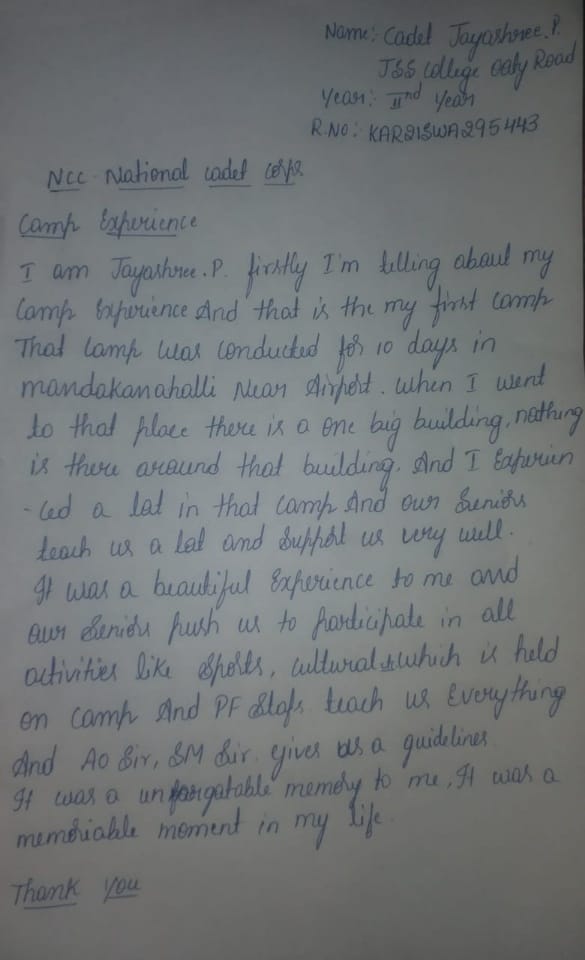 Name: Cadet Jayashree.P.
JSS College Ooty Road
Year: IInd Year
R.NO: KAR21SWA295443
NCC National cadet corps
Camp Experience
I am Jayashree.P. firstly I'm telling about my
Camp Experience And that is the my first camp
That camp was conducted for 10 days in
mandakanahalli Near Airport. when I went
to that place there is a one big building, nothing
is there around that building. And I Experien
-ced a lot in that camp And our Seniors
teach us a lot and support us very well.
It was a beautiful Experience to me and
our Seniors push us to participate in all
activities like sports, cultural which is held
on camp And PF Stafs teach us Everything
And AO Sir, SM Sir gives us a guidelines
It was a unforgatable memory to me, It was a
memoriable moment in my life.
Thank you